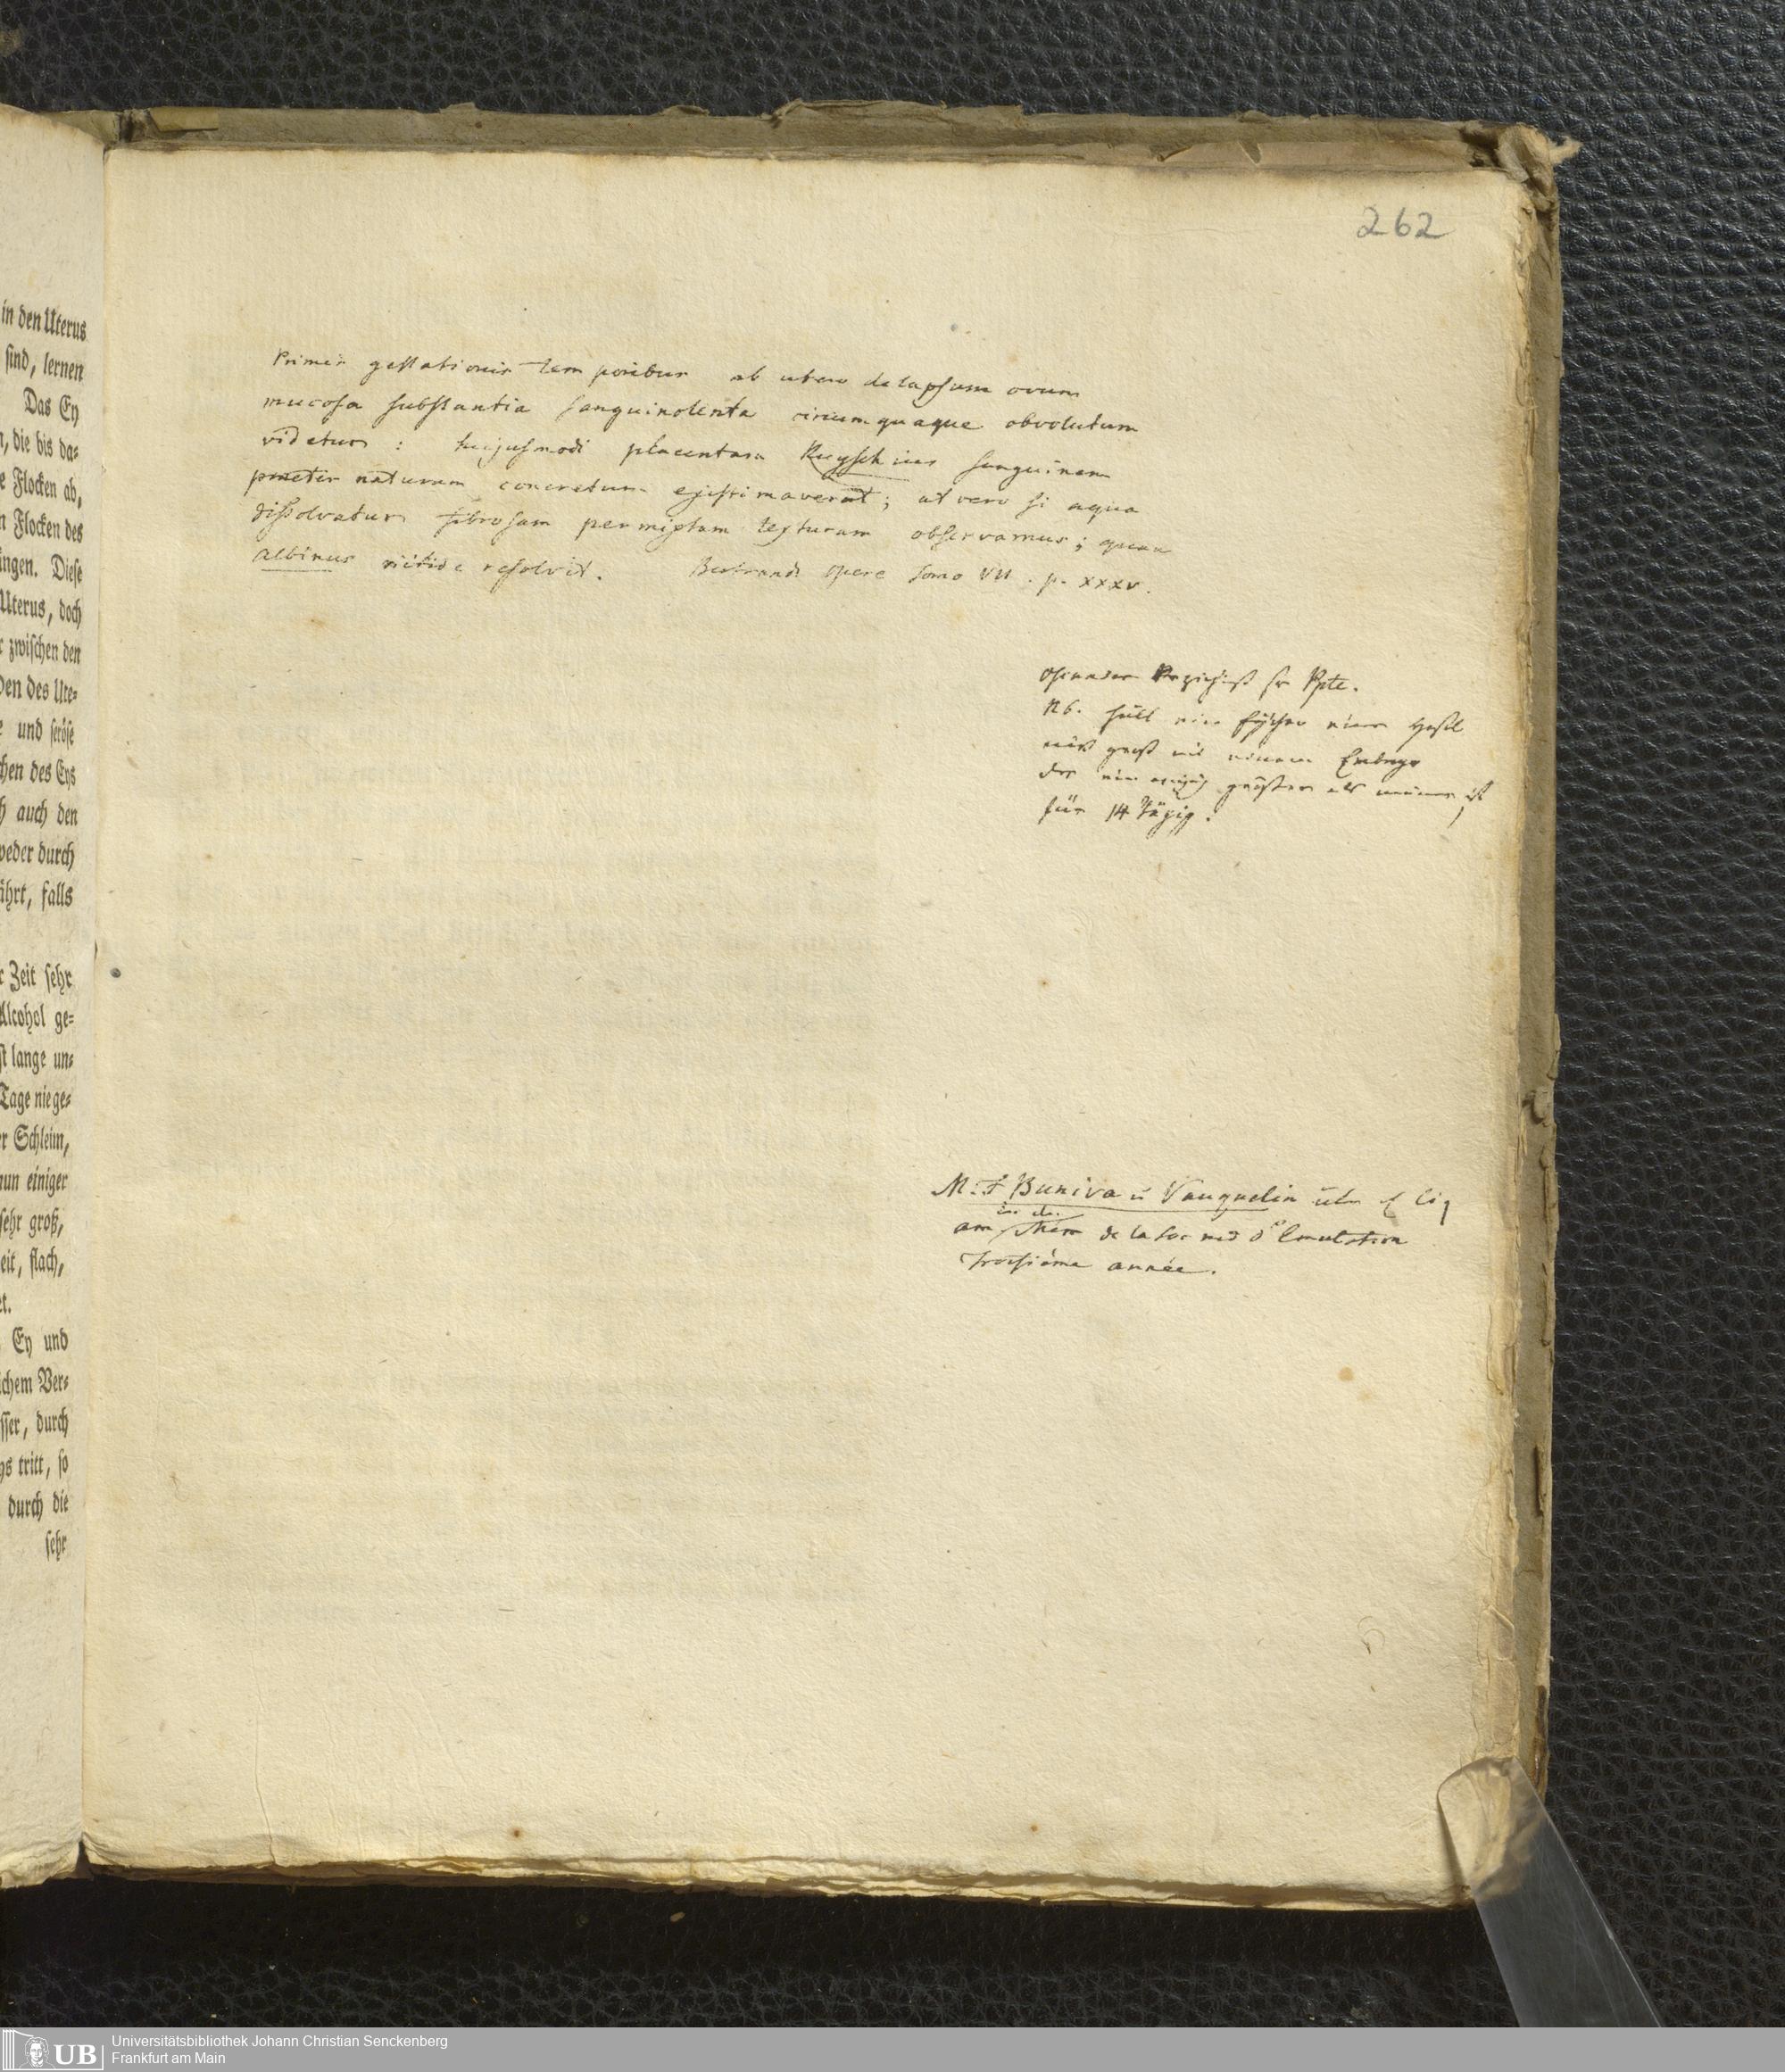 in den Uterus
sind, lernen
Das Ey
n, die bis da⸗
e Flocken ab,
n Flocken des
ingen. Diese
Uterus, doch
r zwischen den
den des Ute⸗
e und seröse
chen des Eys
h auch den
weder durch
ährt, falls
r Zeit sehr
Alcohol ge⸗
st lange un⸗
Tage nie ge⸗
er Schleim,
nun einiger
sehr groß,
eit, flach,
et.
Ey und
ichem Ver⸗
sser, durch
ys tritt, so
durch die
sehr
262
Primis gestationis temporibus ab utero delapsum ovum
mucosa substantia sanguinolenta circumquaque obvolutum
videtur: hujusmodi placentam Ruyschius sanguinem
praeter naturam concretum existimaverat; at vero si aqua
dissolvatur fibrosam permixtam texturam observamus; quam
Albinus nitide resolvit. Bertrandi Opere Tomo VII. p. XXXV.
Osiander
N6. ein einer
groß mit einem Embryo
der größer als ist
für 14 Tägig.
M. F. Buniva u Vauquelin üb. d Liq
am in den Mém de la Soc med d'Emulation
troisième année.
UB
Universitätsbibliothek Johann Christian Senckenberg
Frankfurt am Main